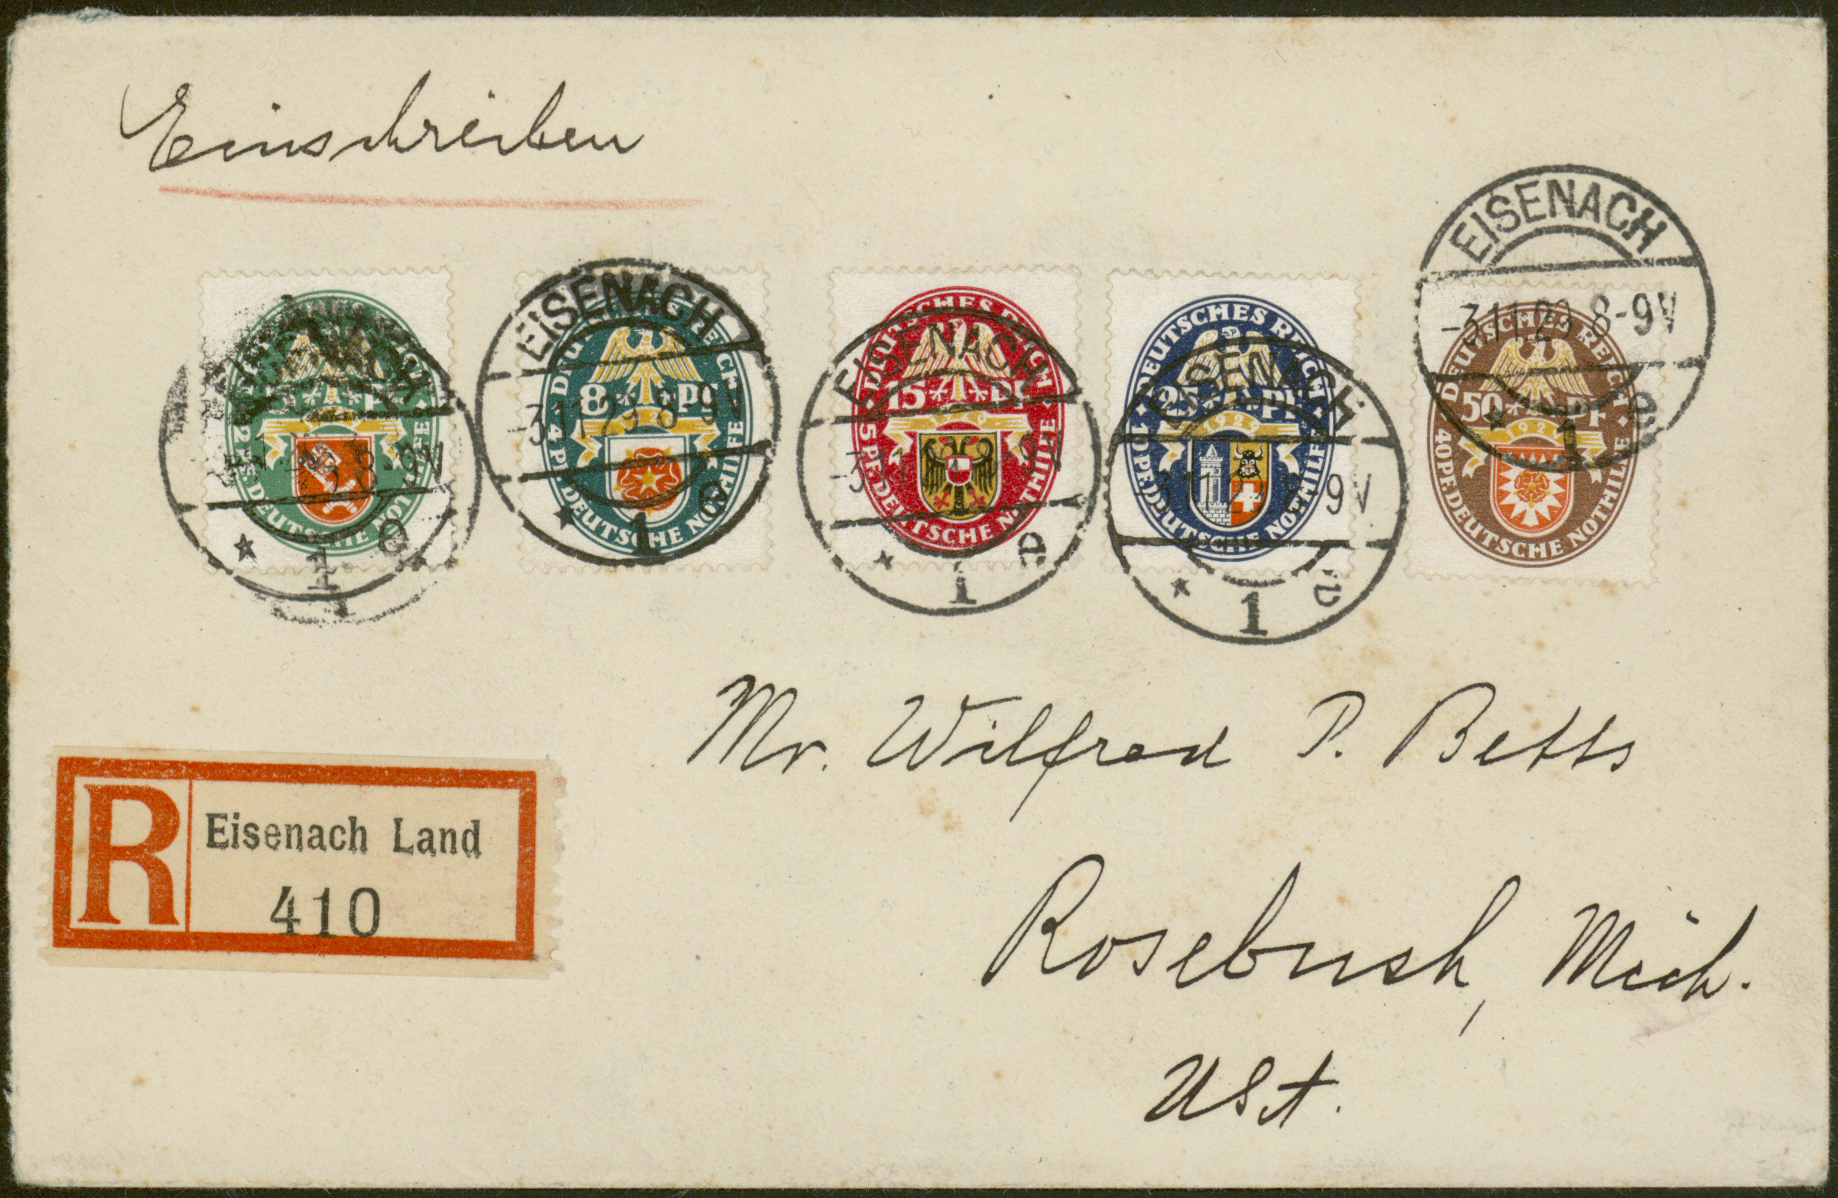 Einschreiben
EISENACH
DEUTSCHES REICH
8 Pf
4 PF. DEUTSCHE NOTHILFE
EISENACH
1 e
DEUTSCHES REICH
15 Pf
5 PF. DEUTSCHE NOTHILFE
EISENACH
1 e
DEUTSCHES REICH
25 Pf
10 PF. DEUTSCHE NOTHILFE
EISENACH
9V
1
DEUTSCHES REICH
50 PF
40 PF. DEUTSCHE NOTHILFE
EISENACH
-3.11.29 8-9V
1 e
DEUTSCHE NOTHILFE
8-9V
1 e
Mr. Wilfred P. Betts
R Eisenach Land
410
Rosebush, Mich.
USA.